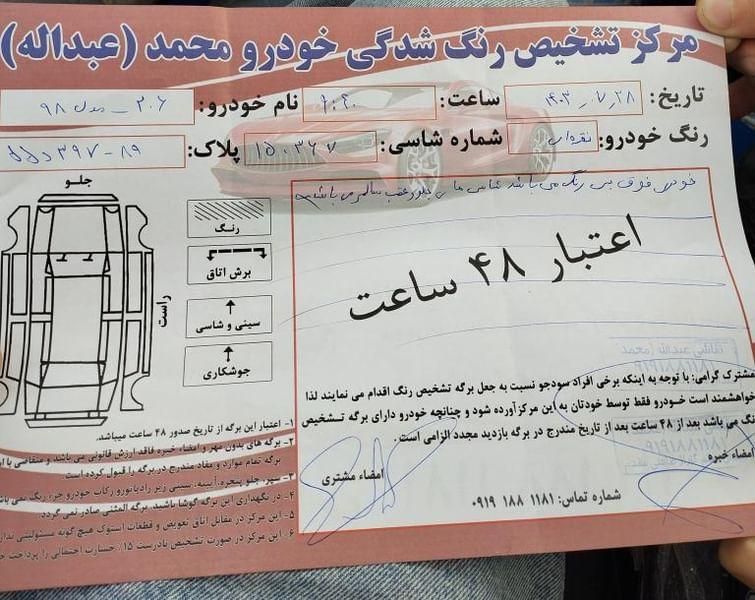 مرکز تشخیص رنگ شدگی خودرو محمد (عبداله)
تاریخ: ۱۴۰۳-۷-۲۸ ساعت: نام خودرو: ۲۰۶ - مدل ۹۸
رنگ خودرو: نقره‌ای شماره شاسی: ۱۵۰۳۶۷ پلاک: ۸۹-۳۹۷
خودرو فوق بی رنگ می باشد شاسی ها جلو و عقب سالم می باشد
اعتبار ۴۸ ساعت
جلو
راست
رنگ
برش اتاق
سینی و شاسی
جوشکاری
نقاشی عبداله (محمد
مشترک گرامی: با توجه به اینکه برخی افراد سودجو نسبت به جعل برگه تشخیص رنگ اقدام می نمایند لذا
خواهشمند است خودرو فقط توسط خودتان به این مرکز آورده شود و چنانچه خودرو دارای برگه تشخیص
رنگ می باشد بعد از ۴۸ ساعت بعد از تاریخ مندرج در برگه بازدید مجدد الزامی است.
امضاء خبره
امضاء مشتری
شماره تماس: ۱۱۸۱ ۱۸۸ ۰۹۱۹
۱- اعتبار این برگه از تاریخ صدور ۴۸ ساعت میباشد.
۲- برگه های بدون مهر و امضاء خبره فاقد ارزش قانونی می باشد و متقاضی با
برگه تمام موارد و مفاد مندرج در برگه را قبول کرده است.
۳- سپر، جلو پنجره، آیینه، سینی زیر رادیاتور و رکاب خودرو جزء رنگ نمی
۴- در نگهداری این برگه کوشا باشید. برگه المثنی صادر نمی گردد.
۵- این مرکز در مقابل اتاق تعویض و قطعات استوک هیچ گونه مسئولیتی
۶- این مرکز در صورت تشخیص نادرست ۱۵٪ خسارت احتمالی را پرداخت